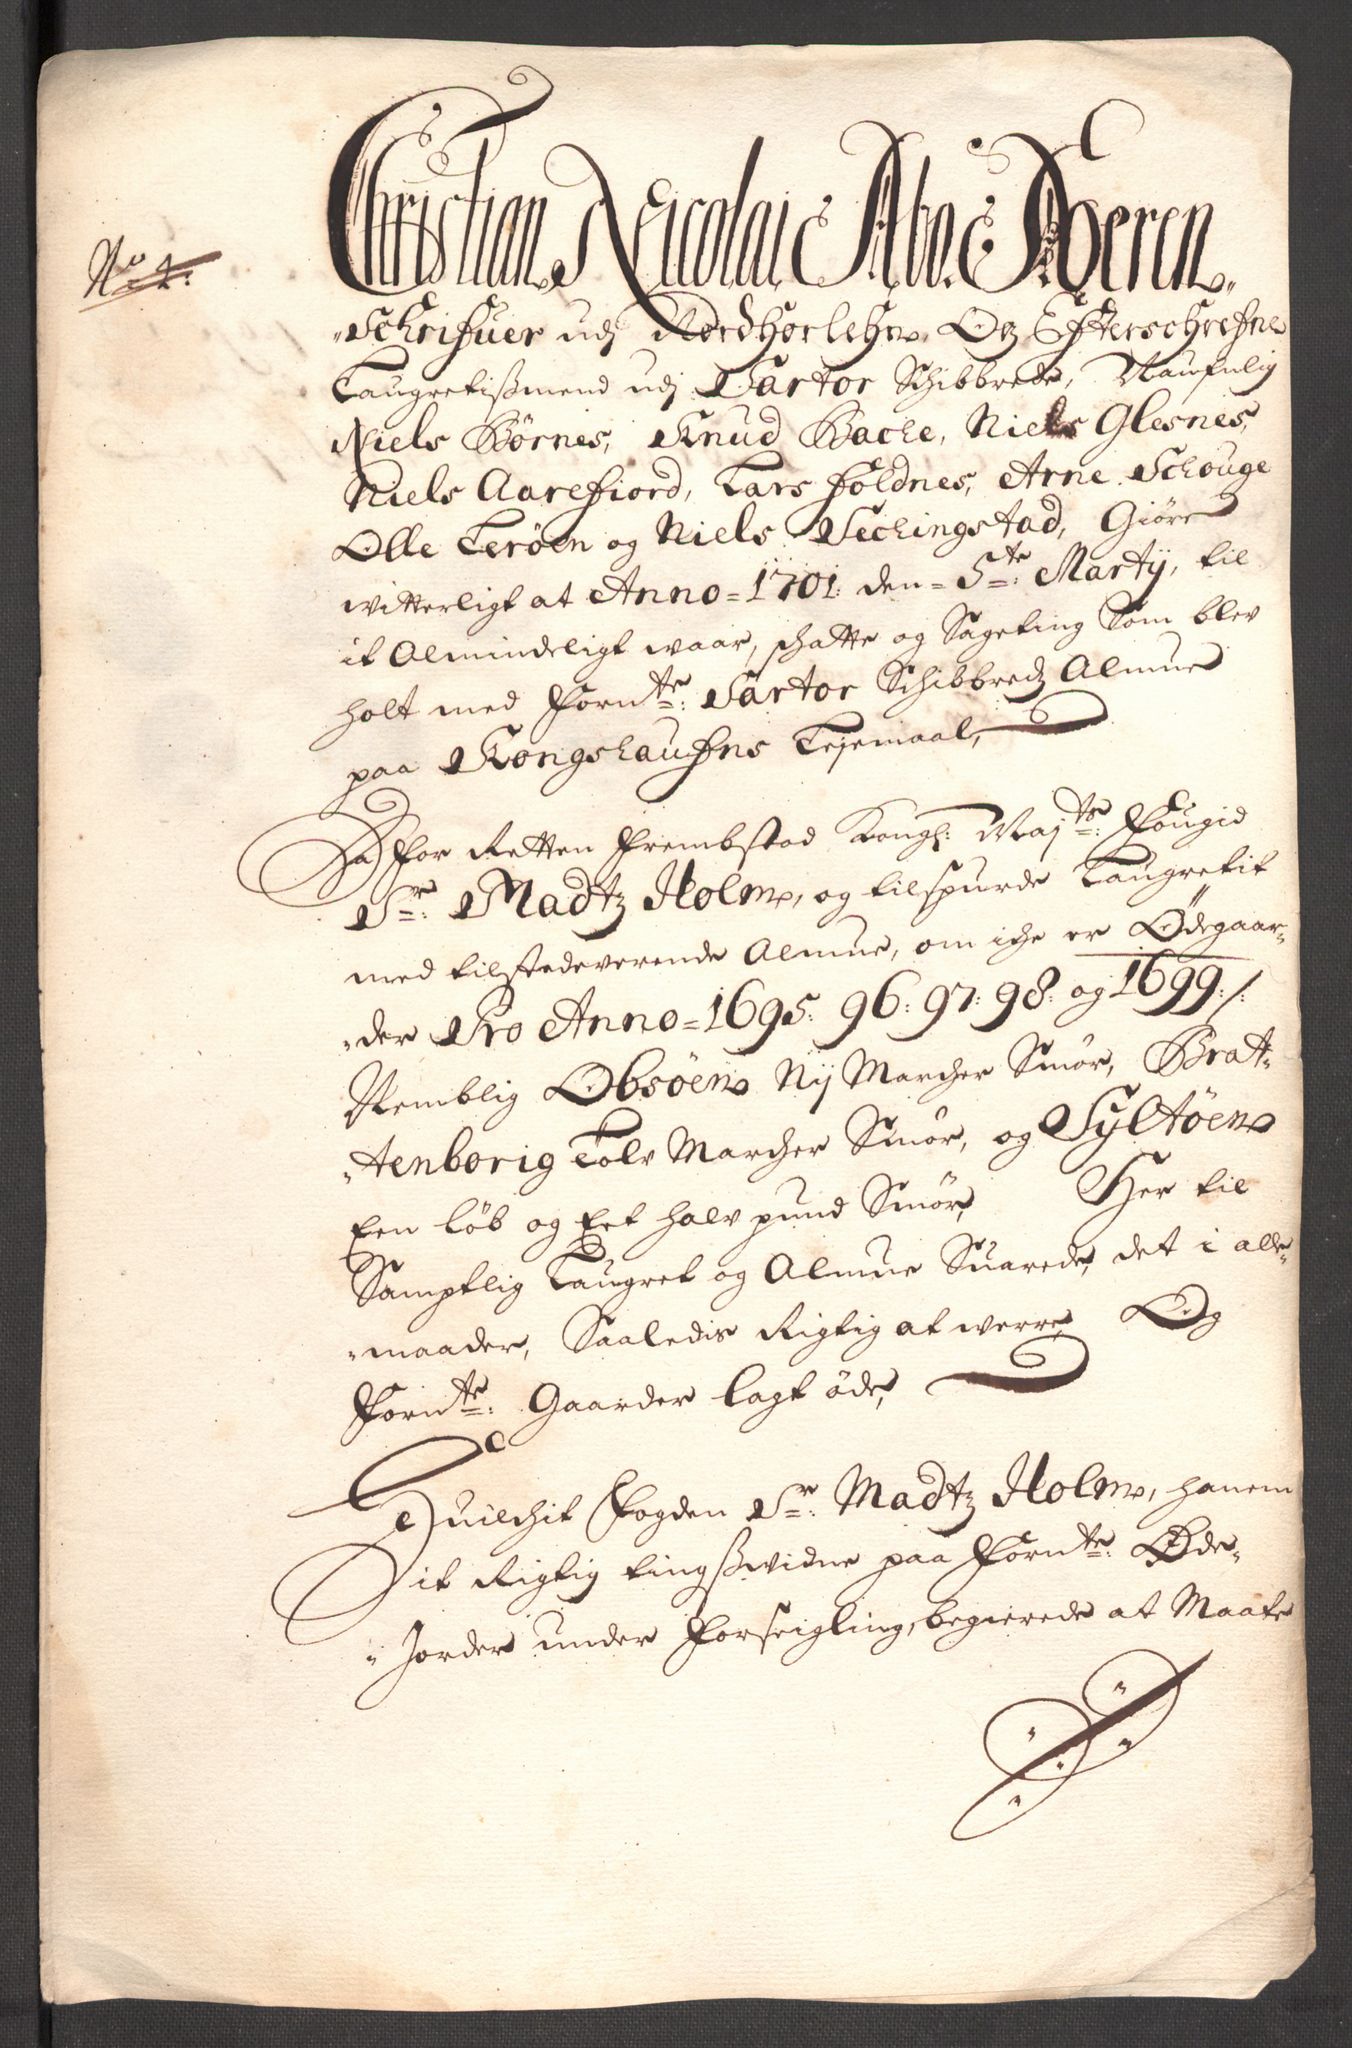 No 4:
Christian Nicolai Abo. Soeren,,
,,Schrifuer udj Nordhorlehn, Og Efterschrefne
Laugretißmend udj Sartor Schibbrede, Naufnlig
Niels Børnes, Knud Bache, Niels Glesnes,
Niels Aarefiord, Lars Foldnes, Arne Schouge
Olle Lerøen og Niels Sechingstad, Giøre
witterligt at Anno=1701: den=5te: Martij, til
it Almindeligt waar, schatte og Sageting Som blev
holt med Fornte: Sartor Schibbredz Almue
paa Kongshaufns Lejemaal,
Da for Retten Frembstod Kongl: Majts: Fougid
Sr: Madtz Holm, og tilspurde Laugretit
med tilstedeverende Almue, om iche er Ødegaar-
,,der Pro Anno=1695: 96: 97: 98: og 1699:/:
Nemblig Obsøen Nij Marcher Smør, Brat-
,,tenborig Tolv Marcher Smør, og Syltøen
Een løb og Eet halv pund Smør, Her til
Samptlig Laugret og Almue Suarede, det i alle-
,,maader, Saaledis Rigtig at werre, Og
Fornte: Gaarder lagt øde,
Huilchit Fogden Sr: Madtz Holm, hanem
it Rigtig tingßwidne paa Fornte: Øde-
,,Jorder under Forseigling, begierede at Maate